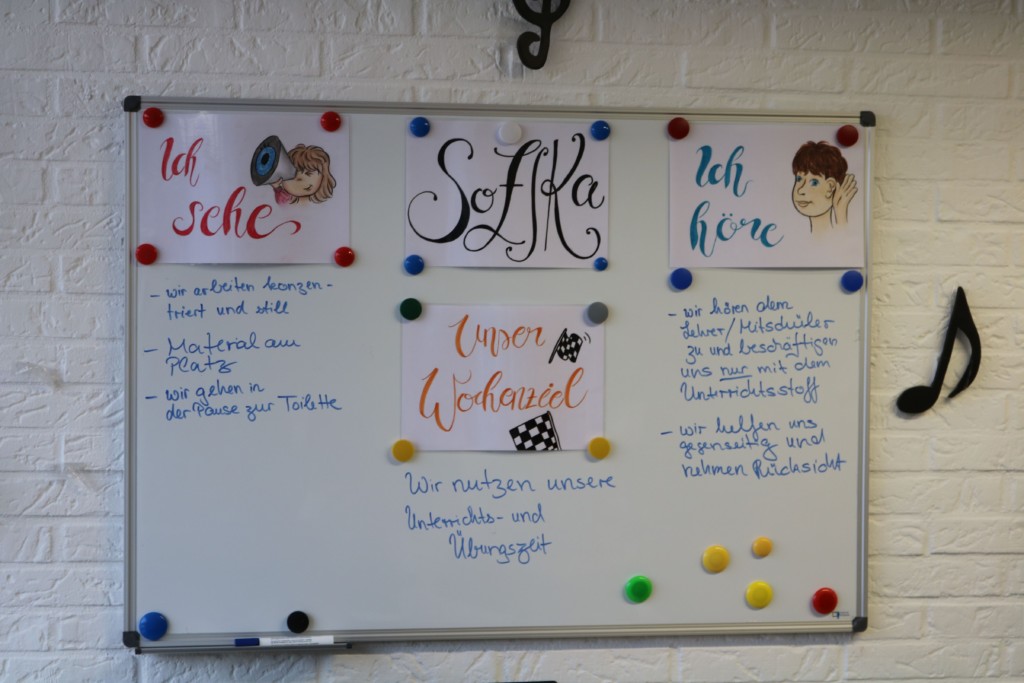 Ich
sehe
- wir arbeiten konzen-
triert und still
- Material am
Platz
- wir gehen in
der Pause zur Toilette
SoZIKa
Unser
Wochenziel
Wir nutzen unsere
Unterrichts- und
Übungszeit
Ich
höre
- wir hören dem
Lehrer/Mitschüler
zu und beschäftigen
uns nur mit dem
Unterrichtsstoff
- wir helfen uns
gegenseitig und
nehmen Rücksicht